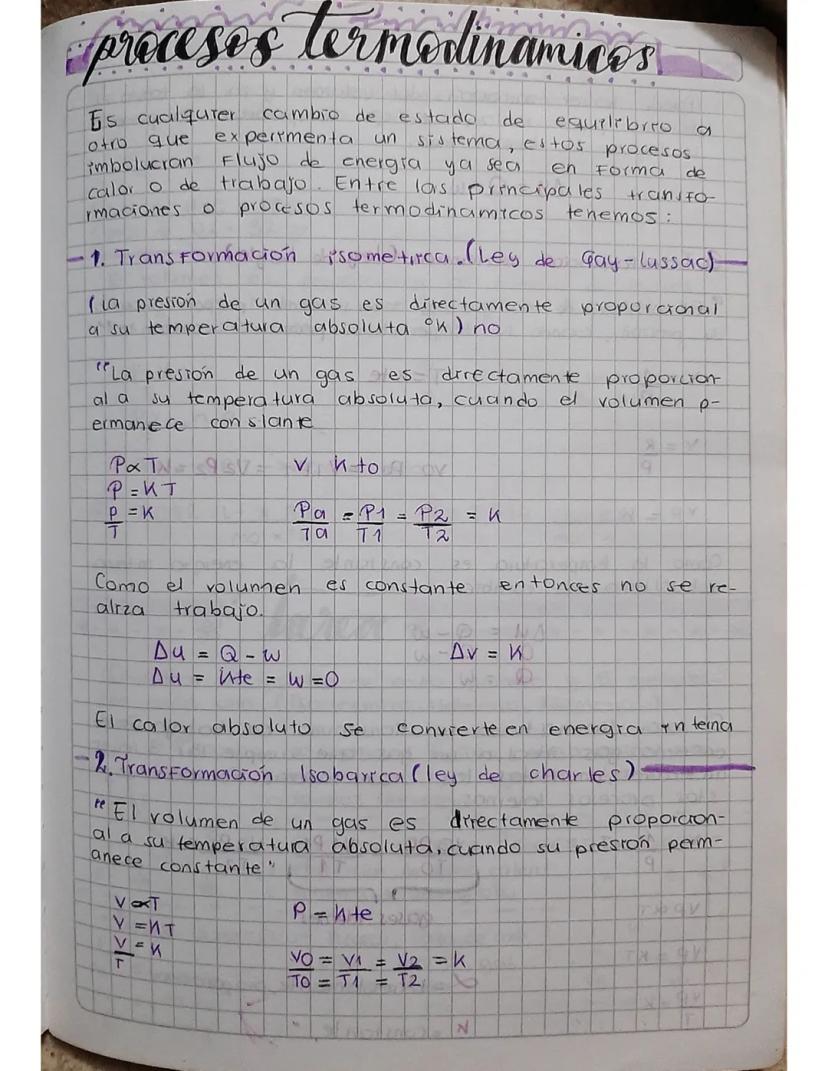 procesos termodinamicos
Es cualquier cambio de estado de equilibrio a
otro que experimenta un sistema, estos procesos
imbolucran Flujo de energía ya sea en Forma de
calor o de trabajo. Entre las principales transfo-
rmaciones o procesos termodinamicos tenemos:
- 1. Transformación isometirca. (Ley de Gay-lussac) -
(la presión de un gas es directamente proporcional
a su temperatura absoluta °K) no
"La presión de un gas es directamente proporcion
al a su temperatura absoluta, cuando el volumen p-
ermanece constante
P∝T V Kto
P = KT
P/T = K Pa/Ta = P1/T1 = P2/T2 = K
Como el volumen es constante entonces no se re-
aliza trabajo.
Δu = Q - w Δv = K
Δu = Kte = w = 0
El calor absoluto se convierte en energía interna
- 2. Transformación Isobarica (ley de charles) -
"El volumen de un gas es directamente proporcion-
al a su temperatura absoluta, cuando su presión perm-
anece constante"
V∝T P = Kte
V = KT
V/T = K V0/T0 = V1/T1 = V2/T2 = K